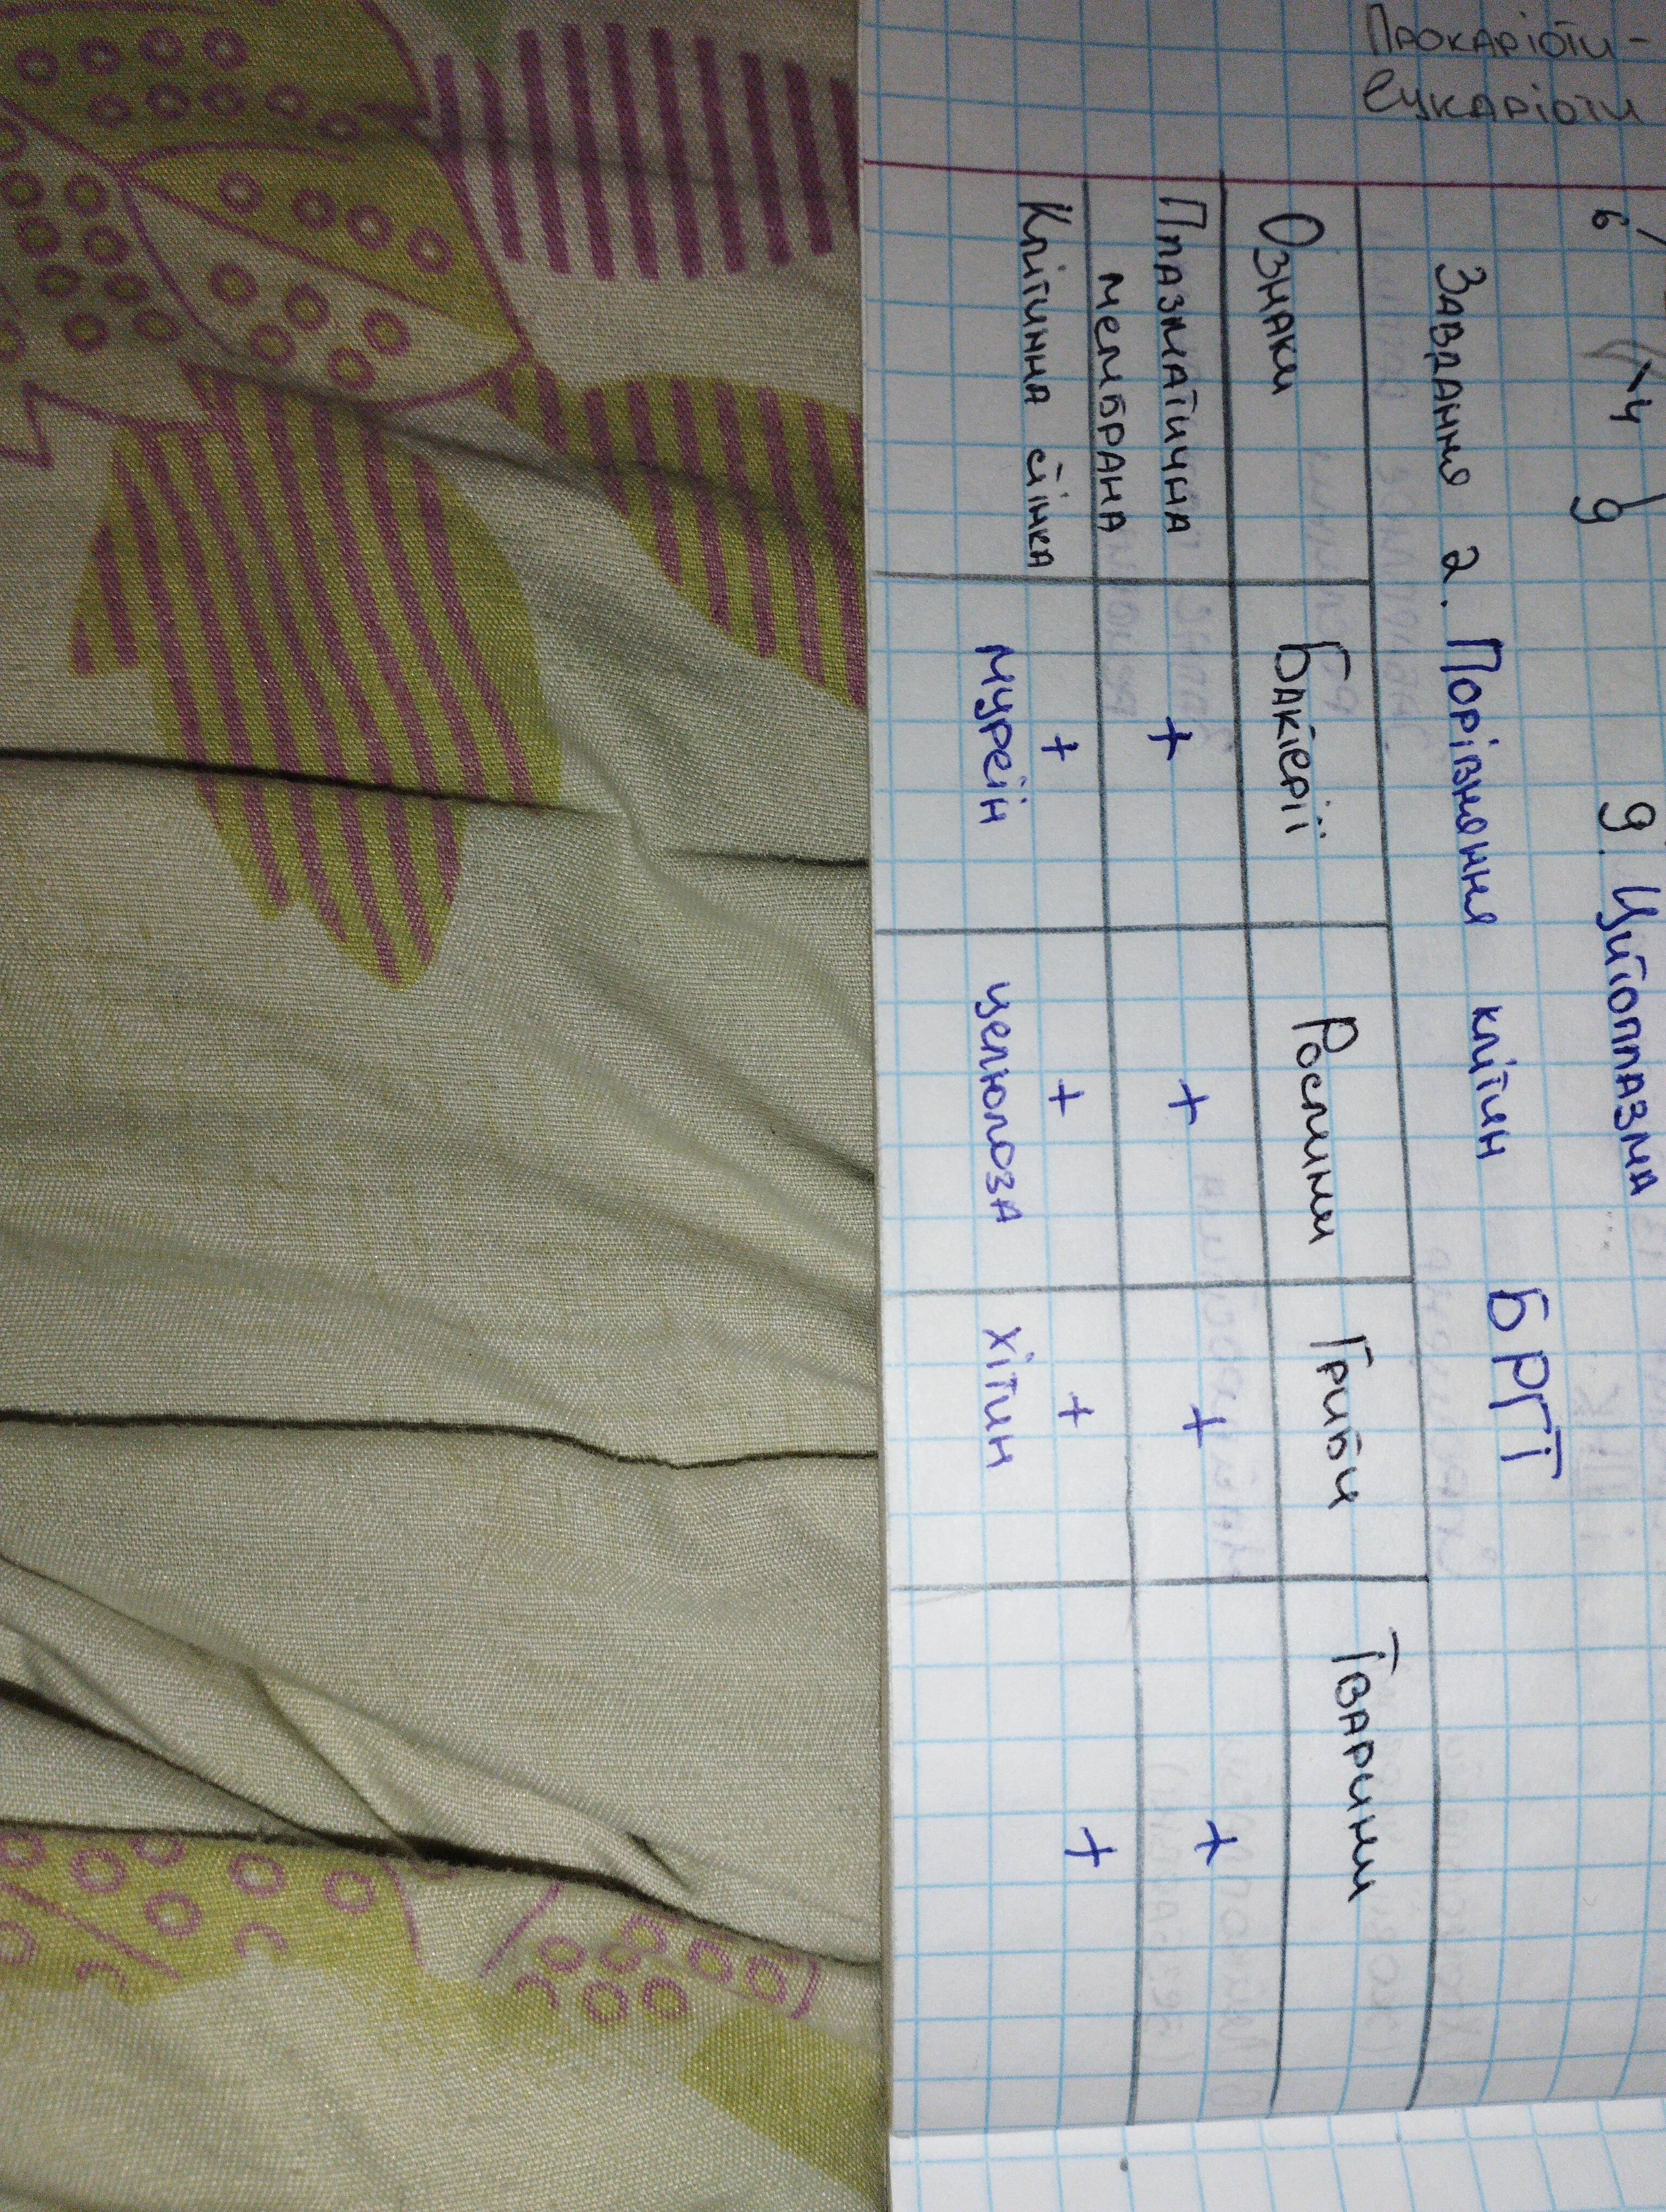 Прокаріоти-
Еукаріоти
9. Цитоплазма
Завдання 2. Порівняння клітин БРГТ
Ознаки Бактерії Рослини Гриби Тварини
Плазматична + + + +
мембрана
Клітинна стінка + + + +
муреїн целюлоза хітин